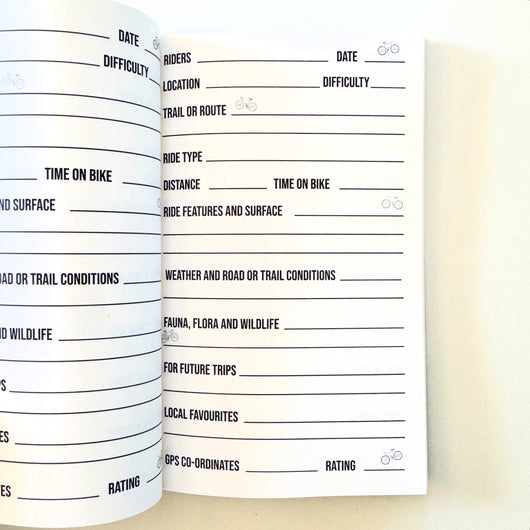 DATE
DIFFICULTY
TIME ON BIKE
ND SURFACE
OAD OR TRAIL CONDITIONS
D WILDLIFE
PS
ES
TES RATING
RIDERS DATE
LOCATION DIFFICULTY
TRAIL OR ROUTE
RIDE TYPE
DISTANCE TIME ON BIKE
RIDE FEATURES AND SURFACE
WEATHER AND ROAD OR TRAIL CONDITIONS
FAUNA, FLORA AND WILDLIFE
FOR FUTURE TRIPS
LOCAL FAVOURITES
GPS CO-ORDINATES RATING